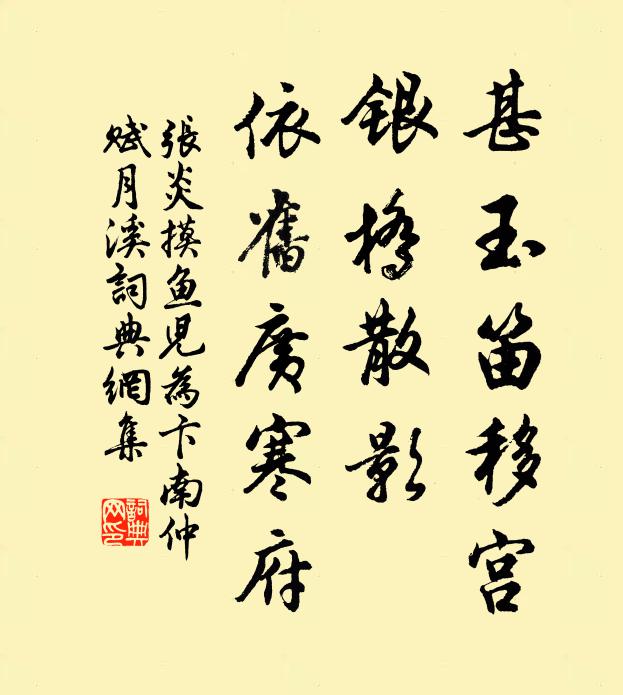 甚玉笛移宫
銀橋散影
依舊廣寒府
張炎摸鱼児為卞南仲
賦月溪詞典網集
詞典网印